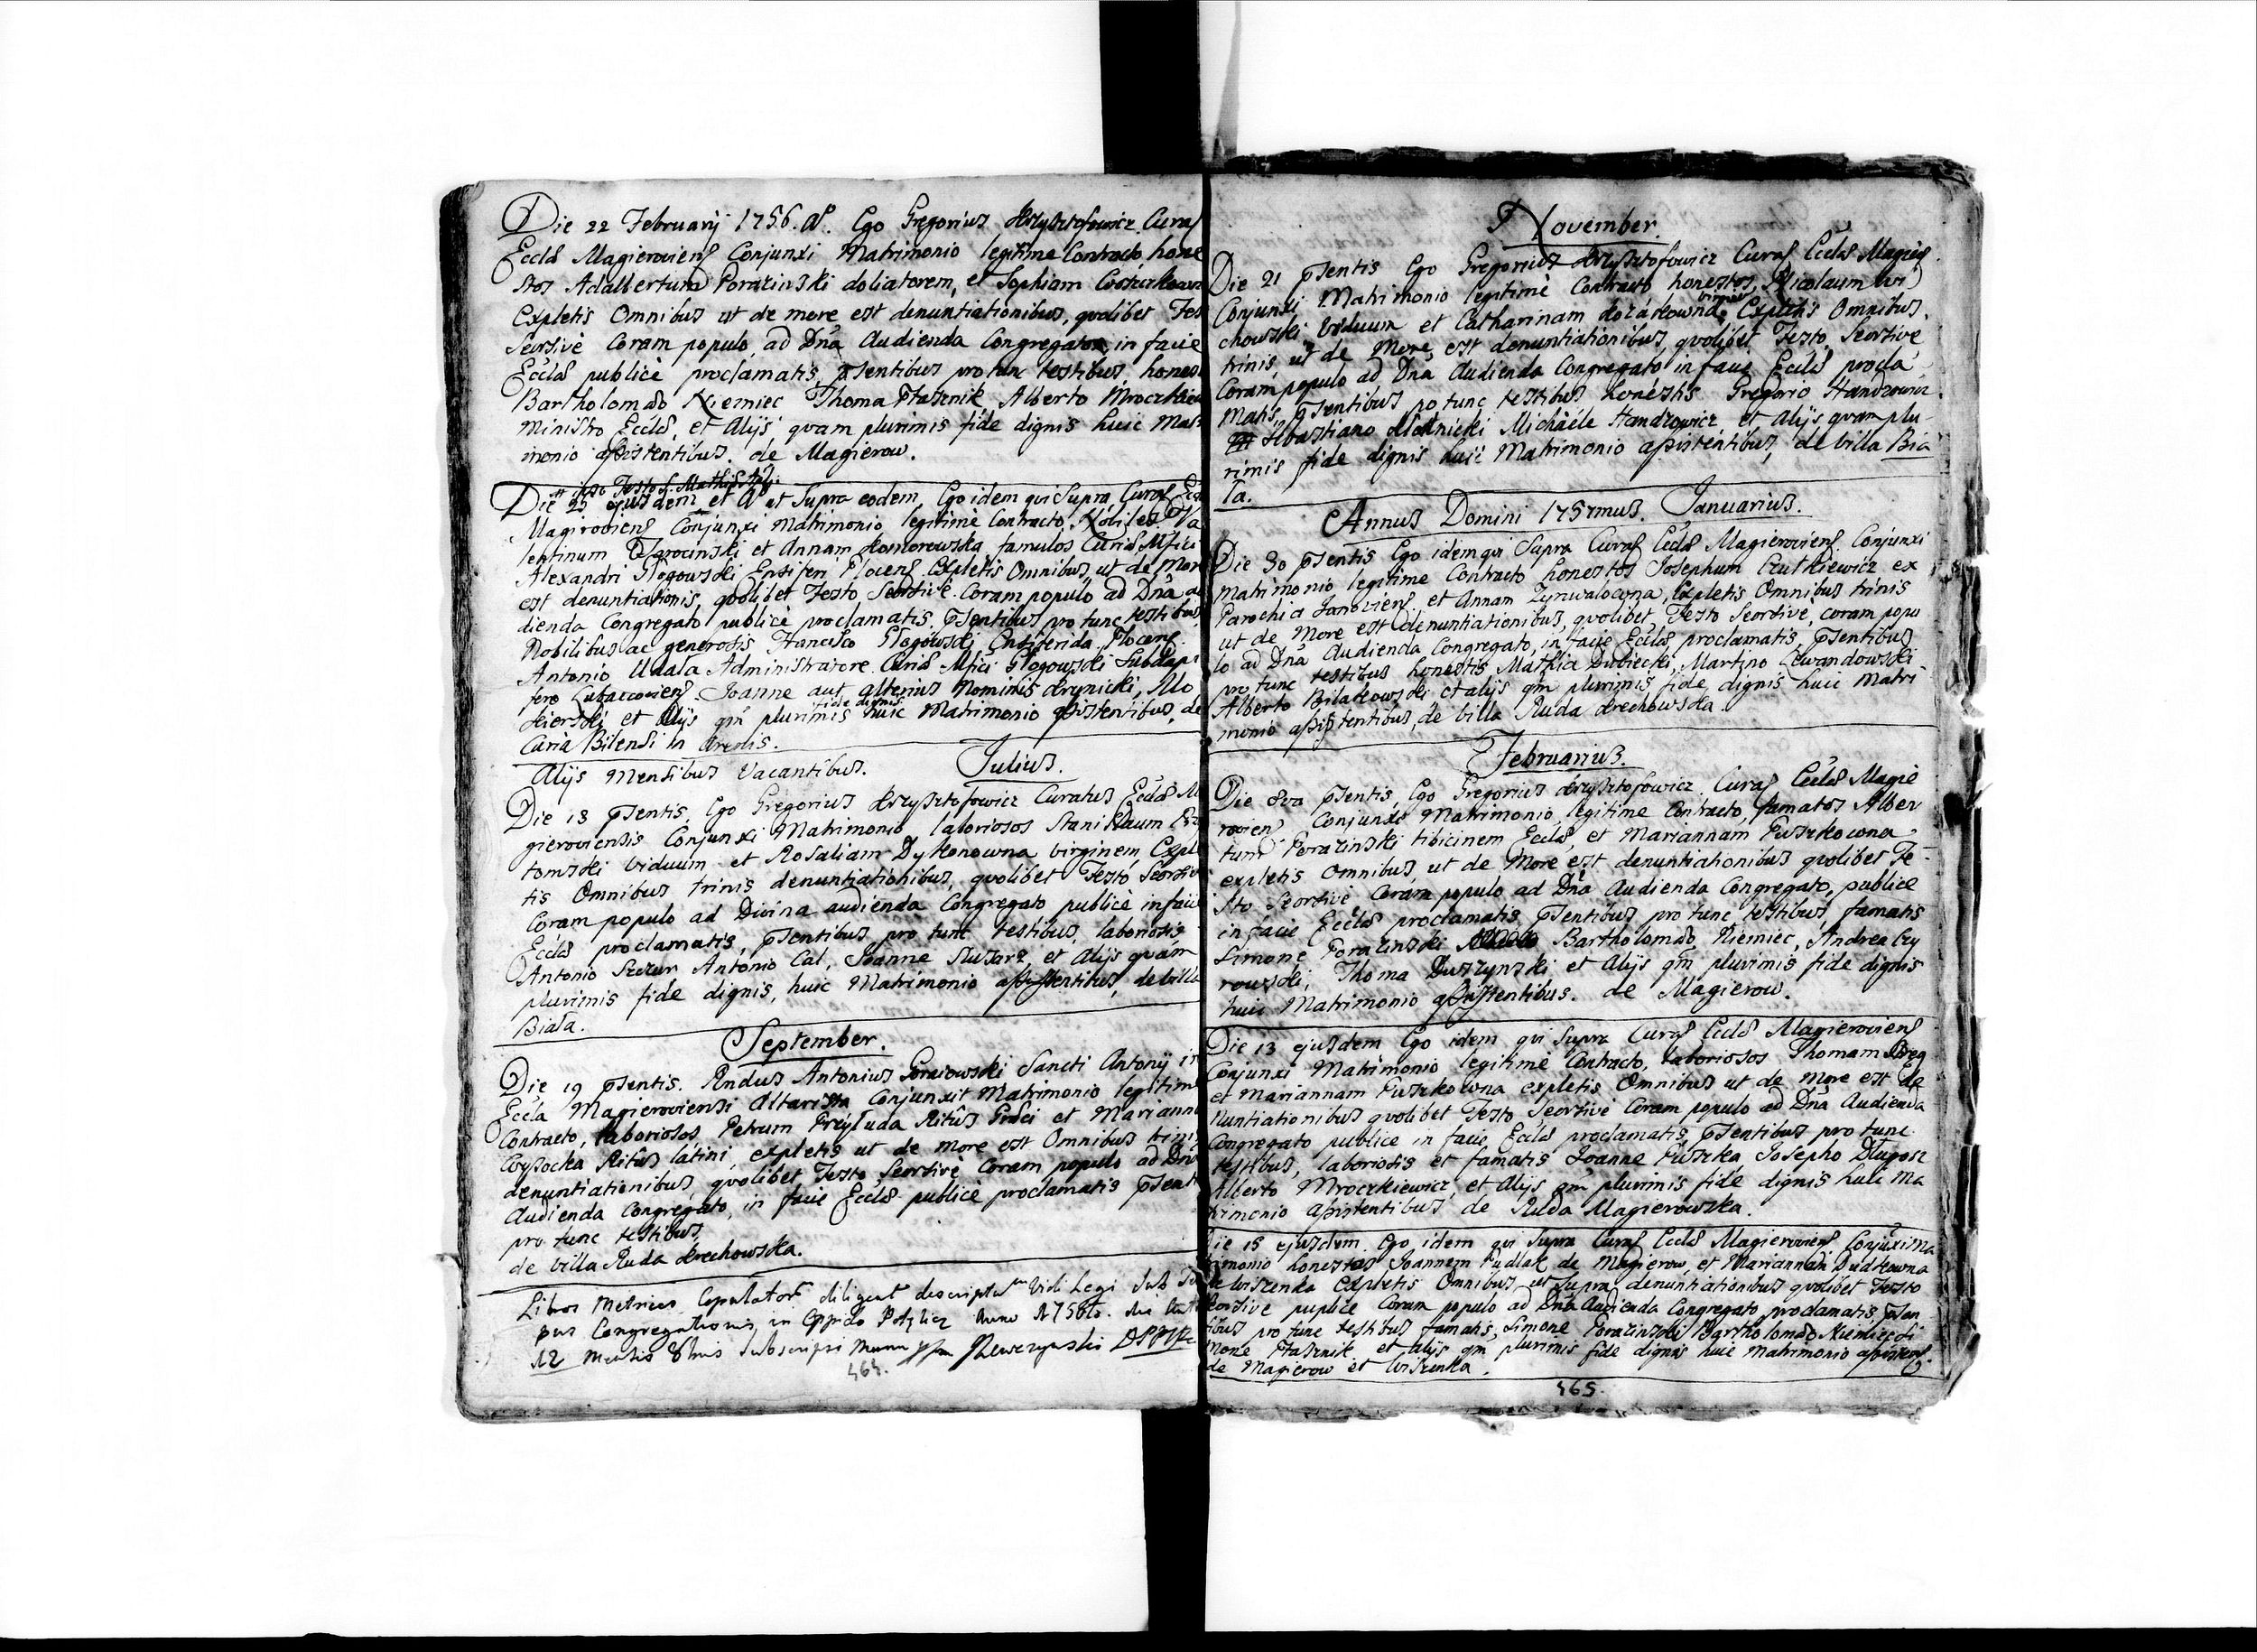 Die 22 Februarij 1756. Aº. Ego Gregorius Krzysztofowicz Curaɫ
Eccłæ Magierovienɫ Conjunxi Matrimonio legitime Contracto hone
stos Adalbertum Poraziński doliatorem, et Sophiam
Expletis Omnibus ut de more est denuntiationibus, qvolibet Fes
Seorsivè Coram populo, ad Dña Audienda Congregato, in facie
Eccłæ publicè proclamatis, pSentibus pro tunc testibus, hones
Bartholomæo Niemiec Thoma Ptasznik Alberto Mroczkiew
Ministro Eccłæ, et Alijs qvam plurimis fide dignis huic Matri
monio assistentibus. de Magierow.
ipso Festo S. Mathiæ Apli.
Die 25 ejusdem et Aº et Supra eodem, Ego idem qui Supra, Curaɫ Ecc
Magirovienɫ Conjunxi Matrimonio legitimè Contracto, Nobiles Va
lentinum et Annam Komorowska famulos Curiæ Mfici
Alexandri Głogowski Ensiferi Plocenɫ Expletis Omnibus, ut de mor
est denuntiationis, qvolibet Festo Seorsivè Coram populo ad Dña au
dienda Congregato publicè proclamatis. pSentibus pro tunc testibus
Nobilibus ac generosis Francisco Głogowski Ensiferida Plocenɫ
Antonio Udała Administratore Curiæ Mfici Głogowski Subdapi
fero Lubaczovienɫ Joanne aut alterius Nominis Krynicki, Mo
kierski et Alijs qm plurimis fide dignis huic Matrimonio assistentibus, de
Curia Bilensi in
Alijs Mensibus Vacantibus. Julius.
Die 18 pSentis, Ego Gregorius Krzysztofowicz Curatus Eccłæ Ma
gieroviensis Conjunxi Matrimonio laboriosos Stanislaum
tomski Viduum et Rosaliam Dykonowna virginem, Exple
tis Omnibus trinis denuntiationibus, qvolibet Festo Seorsivè
Coram populo ad Divina audienda Congregato publicè in facie
Eccłæ proclamatis, pSentibus pro tunc testibus, laboriosis
Antonio Szczur Antonio Cal, Joanne Slusarz et Alijs qvam
plurimis fide dignis, huic Matrimonio assistentibus, de villa
Biała.
September.
Die 19 pSentis. Rndus Antonius Goraiowski Sancti Antonij in
Eccła Magieroviensi Altarista Conjunxit Matrimonio legitime
Contracto, laboriosos Petrum Preytuda Ritûs Græci et Mariann
Wysocka Ritûs latini, expletis ut de more est Omnibus trinis
denuntiationibus, qvolibet Festo Seorsivè Coram populo ad Dna
Audienda Congregato, in facie Eccłæ publicè proclamatis pSenti
pro tunc testibus,
de villa Ruda Krechowska.
Libros Metrices Copulator diligent descriptos Vidi Legi Sub Tem
pus Congregationis in Oppido Potylicz Anno 1758
12 Mensis 8bris Subscripsi Manu ppa
464.
November.
Die 21 pSentis Ego Gregorius Krzysztofowicz Curaɫ Eccłæ Magieɫ
Conjunxi Matrimonio legitimè Contracto honestos, Nicolaum Woy
chowski Viduum et Catharinam virginem Expletis Omnibus.
trinis, ut de More, est denuntiationibus, qvolibet Festo, Seorsive
Coram populo ad Dna Audienda Congregato in facie Eccłæ procla
matis, pSentibus pro tunc testibus honestis Gregorio Handzowicz
Sebastiano Michnicki Michaële Handzowicz et Alijs qvam plu
rimis fide dignis huic Matrimonio assistentibus, de villa Bia
ła.
Annus Domini 1757mus. Januarius.
Die 30 pSentis Ego idem qui Supra Curaɫ Eccłæ Magierovienɫ. Conjunxi
Matrimonio legitime Contracto honestos Josephum Czutkiewicz ex
Parochia Janovienɫ, et Annam Zynwalocona, Expletis Omnibus trinis
ut de More est denuntiationibus, qvolibet, Festo Seorsivè, coram popu
lo ad Dna Audienda Congregato, in facie Eccłæ proclamatis, pSentibus
pro tunc testibus honestis Mathia Dubiecki, Martino Lewandowski
Alberto Bilakowski et alijs qm plurimis, fide dignis huic Matri
monio assistentibus, de villa Ruda Krechowska.
Februarius.
Die 8va pSentis, Ego Gregorius Krzysztofowicz Curaɫ Eccłæ Magie
rovienɫ Conjunxi Matrimonio, legitime Contracto, famatos Alber
tum Poraziński tibicinem Eccłæ, et Mariannam Puszkowna
expletis Omnibus, ut de More est denuntiationibus qvolibet Fe
sto Seorsivè, Coram populo ad Dña Audienda Congregato, publice
in facie Eccłæ proclamatis, pSentibus pro tunc testibus, famatis
Simone Poraziński Bartholomæo Niemiec, Andrea Czy
rowski, Thoma Duszynski et Alijs qm plurimis fide dignis
huic Matrimonio assistentibus. de Magierow.
Die 13 ejusdem Ego idem qui Supra Curaɫ Eccłæ Magierovienɫ
Conjunxi Matrimonio legitimè Contracto, laboriosos Thomam
et Mariannam Puszkowna expletis Omnibus ut de More est de
nuntiationibus qvolibet Festo Seorsivè Coram populo ad Dña Audienda
Congregato publice in facie Eccłæ proclamatis, pSentibus pro tunc
testibus, laboriosis et famatis Joanne Puszka Josepho Długosz
Alberto Mroczkiewicz et Alijs qm plurimis fide dignis huic Ma
trimonio assistentibus de Ruda Magierowska.
Die 15 ejusdem Ego idem qui Supra Curaɫ Eccłæ Magierovienɫ Conjuxi Ma
trimonio honestos Joannem Pudlak de Magierow, et Mariannam Dudkowna
de Wiszenka Expletis Omnibus ut Supra denuntiationibus qvolibet Festo
Seorsive puplice Coram populo ad Dña Audienda Congregato, proclamatis, pSen
tibus pro tunc testibus famatis, Simone Poraziński Bartholomæo Niemiec Si
mone Ptasznik, et Alijs qm plurimis fide dignis huic Matrimonio assistenɫ.
de Magierow et Wiszenka.
465.